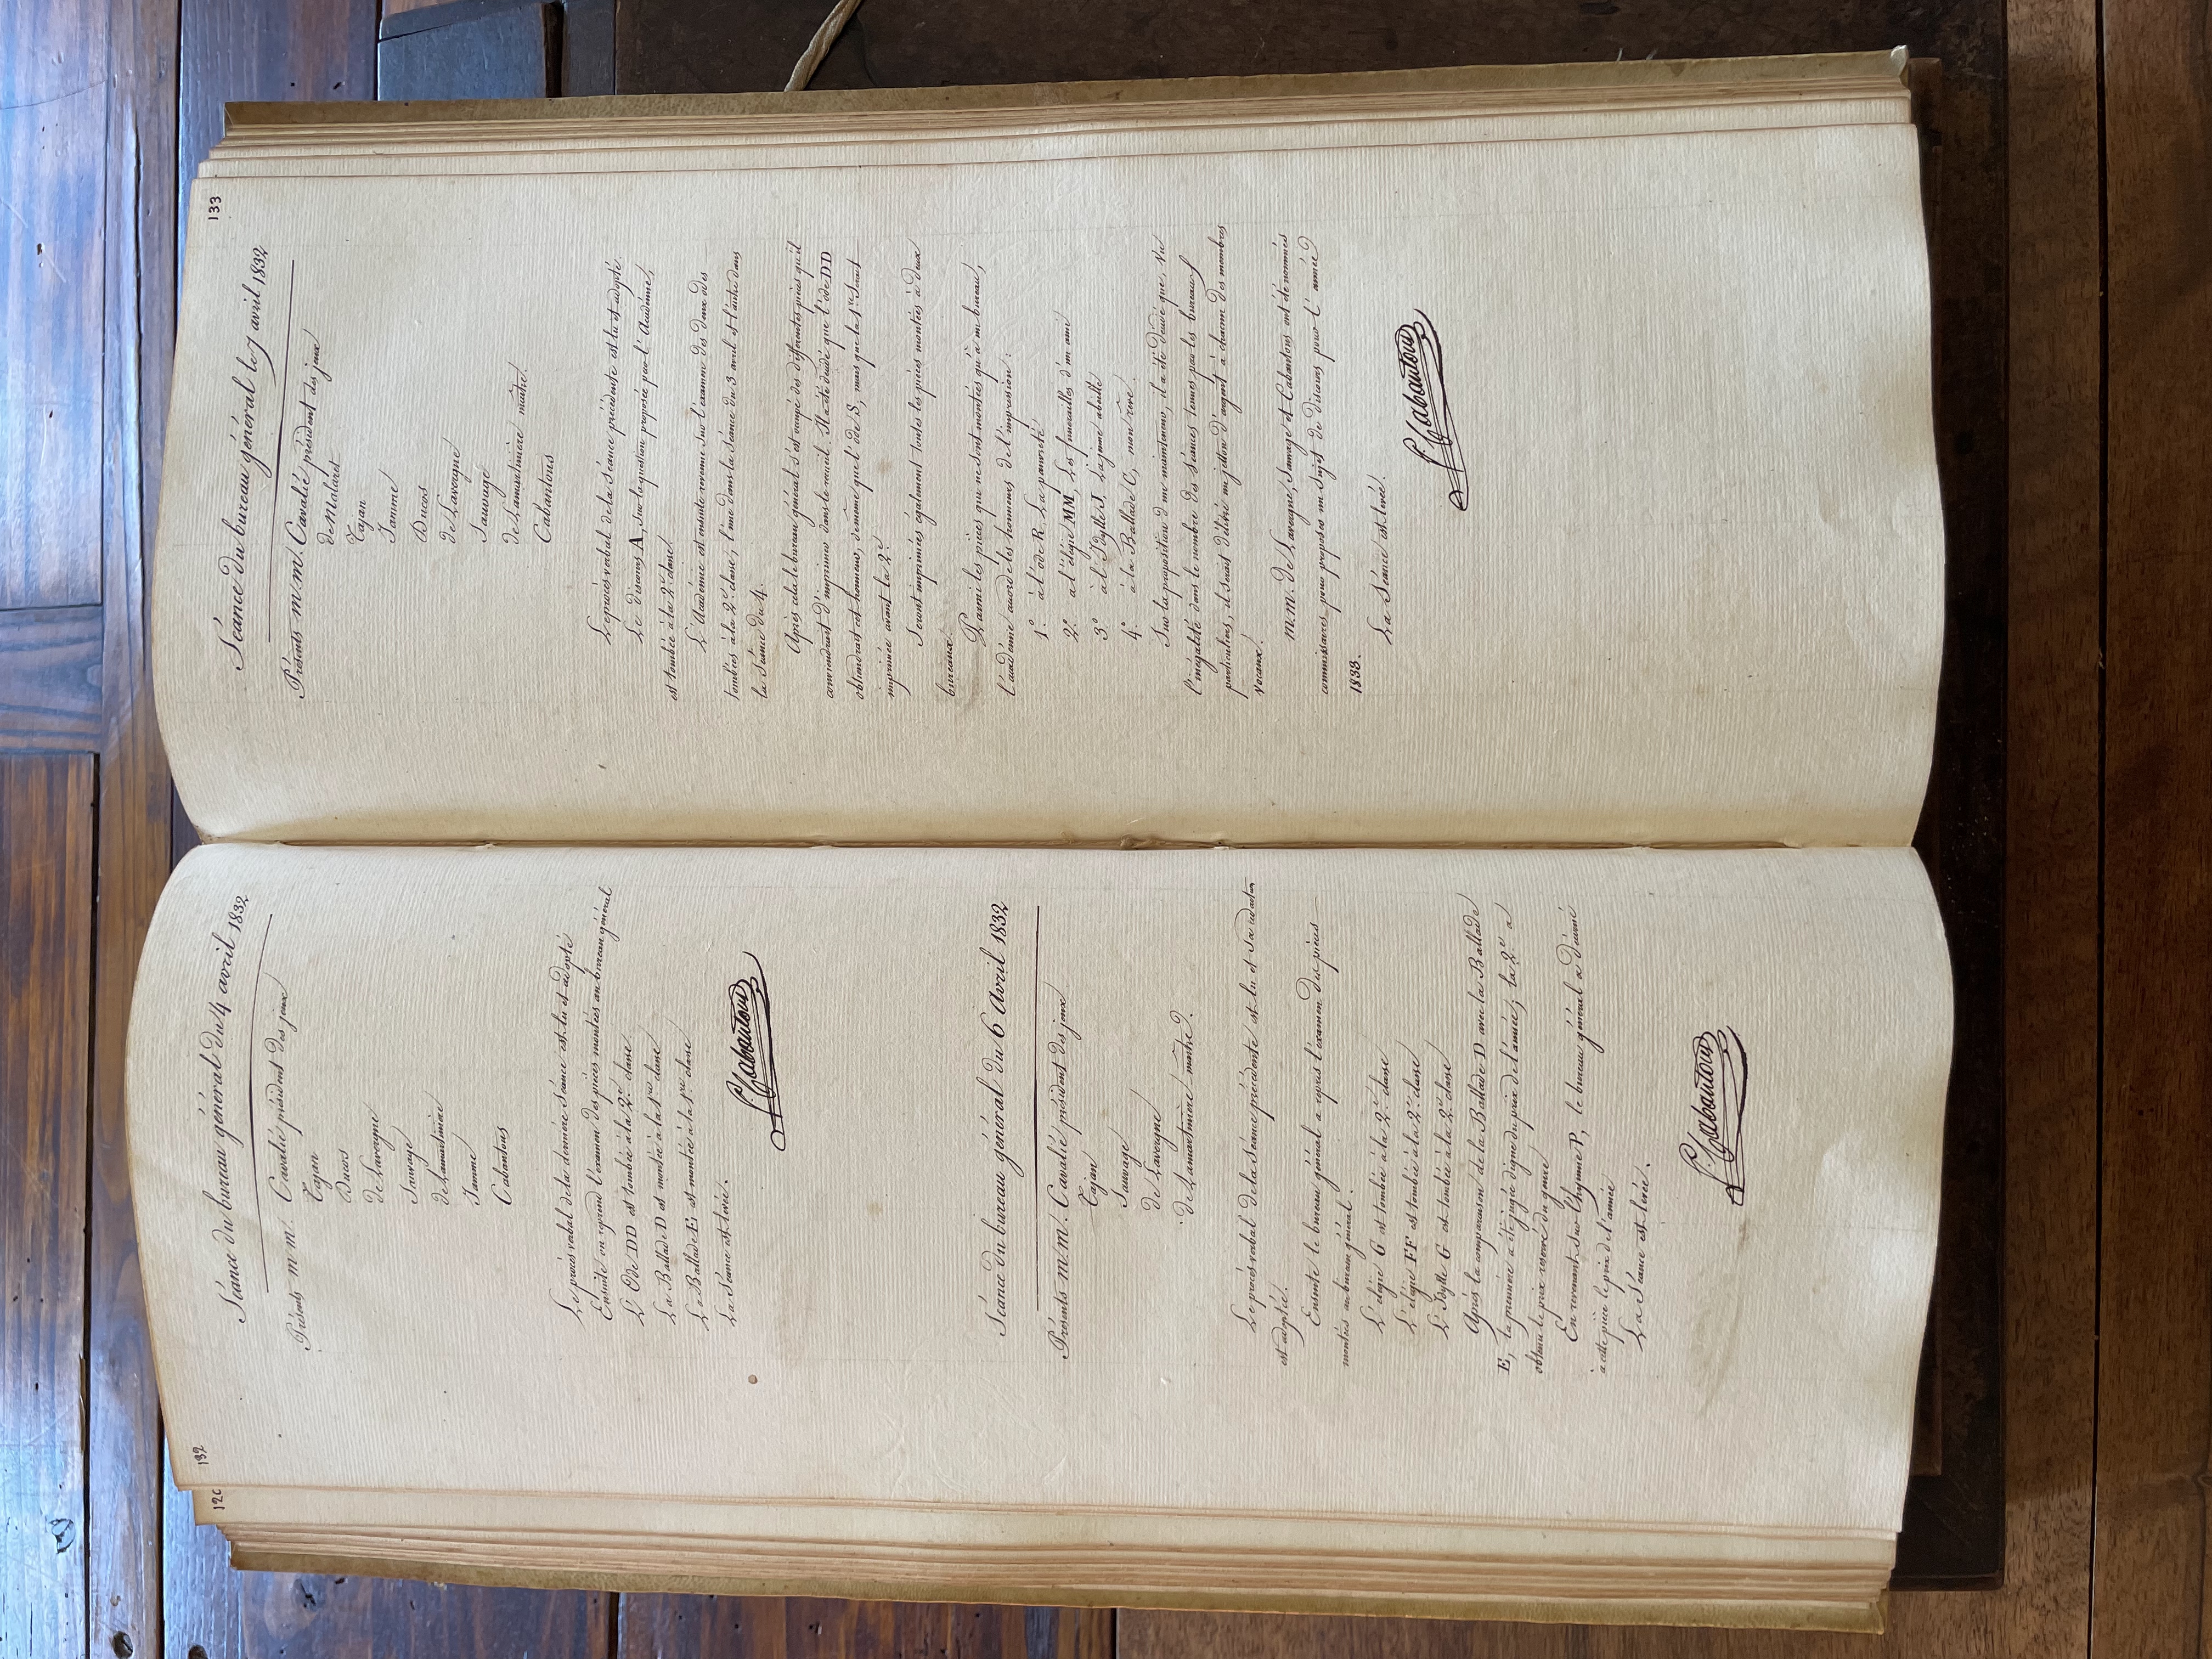 120
132
Séance du bureau général du 4 avril 1832
Présents m.m. Cavalié président des jeux
Tajan
Ducos
de Lavergne
Sauvage
de Lamartinière
Jamme
Cabantous
Le procès verbal de la dernière séance est lu et adopté
Ensuite on reprend l'examen des pièces montées au bureau général
L'Ode DD est tombée à la 2e. classe.
La Ballade D est montée à la 1re classe
La Ballade E est montée à la 1re classe
La Séance est levée.
Cabantous
Séance du bureau général du 6 avril 1832
Présents m.m. Cavalié président des jeux
Tajan
Sauvage
de Lavergne
de Lamartinière, mâitre.
Le procès verbal de la séance précédente est lu et sa rédaction
est adoptée.
Ensuite le bureau général a repris l'examen des pièces
montées au bureau général.
L'élégie G est tombée à la 2e. classe
L'élégie FF est tombée à la 2e. classe
L'Idylle G est tombée à la 2e classe
Après la comparaison de la Ballade D avec la Ballade
E, la première a été jugée digne du prix de l'année; la 2e. a
obtenu le prix reservé du genre
En revenant sur l'hymne P, le bureau général a décerné
à cette pièce le prix de l'année
La Séance est levée.
Cabantous
133
Séance du bureau général le 7 avril 1832
Présents m.m. Cavalié président des jeux
de Malaret
Tajan
Jamme
Ducos
de Lavergne
Sauvage
de Lamartinière mâitre.
Cabantous
Le procès verbal de la séance précédente est lu et adopté.
Le discours A, sur la question proposée par l'Académie,
est tombé à la 2e. classe.
L'Académie est ensuite revenue sur l'examen des deux odes
tombées à la 2e. classe, l'une dans la séance du 3 avril et l'autre dans
la séance du 4.
Après cela le bureau général s'est occupé des différentes pièces qu'il
conviendrait d'imprimer dans le recueil. Il a été decidé que l'ode DD
obtiendrait cet honneur, de même que l'ode S, mais que la 1re. serait
imprimée avant la 2e.
Seront imprimées également toutes les pièces montées à deux
bureaux.
Parmi les pièces qui ne sont montées qu'à un bureau,
l'académie accorde les honneurs de l'impression:
1.° à l'ode R. La pauvreté
2.° à l'élégie MM, Les funerailles d'un ami
3.° à l'Idylle J, La jeune abeille
4.° à la Ballade C, mon rêve.
Sur la proposition d'un mainteneur, il a été décidé que, vu
l'inégalité dans le nombre des séances tenues par les bureaux
particuliers, il serait délivré un jetton d'argent à chacun des membres
vocaux.
M.M. de Lavergne, Sauvage et Cabantous ont été nommés
commissaires pour proposer un sujet de discours pour l'année
1833.
La Séance est levée.
Cabantous